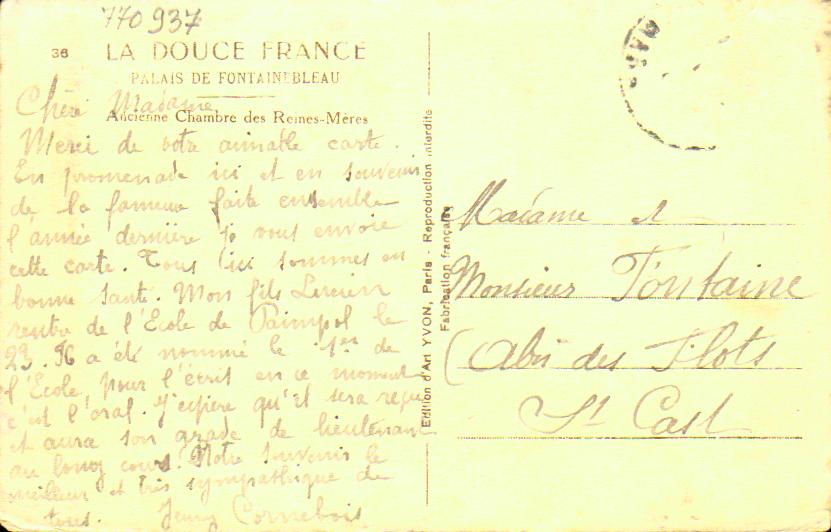 770937
36 LA DOUCE FRANCE
PALAIS DE FONTAINEBLEAU
Ancienne Chambre des Reines-Mères
Chère Madame
Merci de votre aimable carte.
En promenade ici et en souvenir
de la fameuse faite ensemble
l'année dernière je vous envoie
cette carte. Tous ici sommes en
bonne santé. Mon fils Lucien
rentre de l'École de Paimpol le
23. Il a été nommé le 1er de
l'École, pour l'écrit en ce moment
c'est l'oral. J'espère qu'il sera reçu
et aura son grade de lieutenant
au long cours. Notre souvenir le
meilleur et très sympathique de
tous. Cornebois
Edition d'Art YVON, Paris - Reproduction interdite
Fabrication française
Madame et
Monsieur Fontaine
Abri des Flots
St Cast